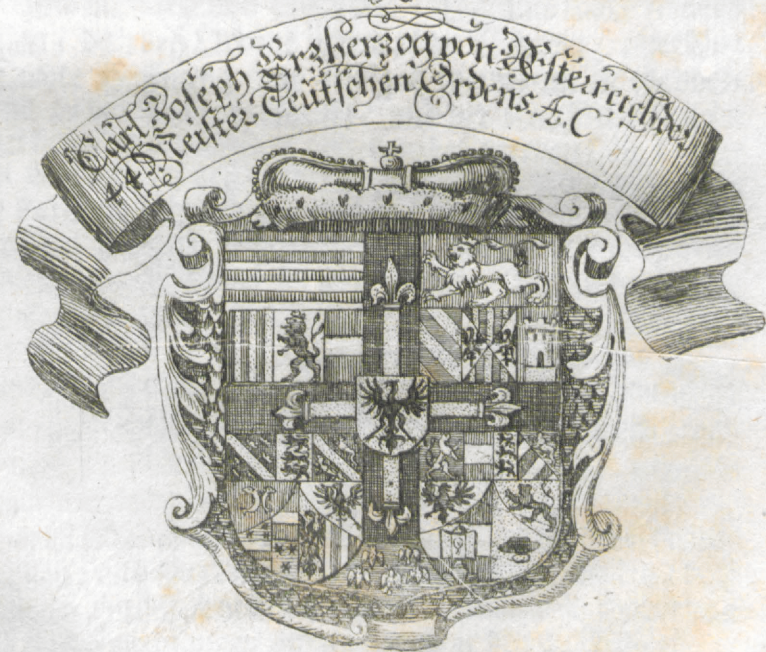 Carl Joseph Ertzherzog von Osterreich der
44 Meister Teütschen Ordens. A. C